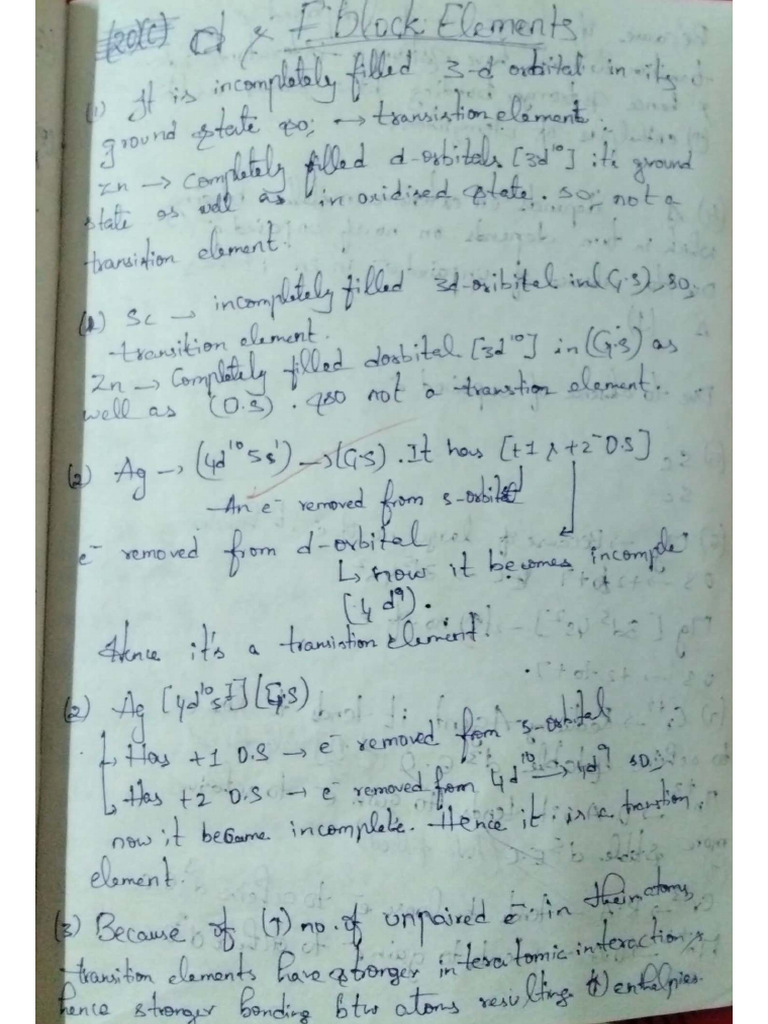 d & F Block Elements
(1) It is incompletely filled 3-d orbital in its
ground state so; → transistion element.
Zn → completely filled d-orbitals [3d¹⁰] it's ground
state as well as in oxidised state. so, not a
transistion element.
(1) Sc → incompletely filled 3d-oribital in (G.S), so;
transition element.
Zn → Completely filled dorbital [3d¹⁰] in (G.S) as
well as (O.S). so not a transtion element.
(2) Ag → (4d¹⁰ 5s¹) → (G.S). It has [+1 & +2 O.S]
An e⁻ removed from s-orbital
e⁻ removed from d-orbital
↳ now it becomes incomple
(4d⁹).
Hence it's a transistion element.
(2) Ag [4d¹⁰s¹] (G.S)
↳ Has +1 O.S → e⁻ removed from s-orbital
↳ Has +2 O.S → e⁻ removed from 4d¹⁰ → 4d⁹ so;
now it became incomplete. Hence it is a transtion
element.
(3) Because of (↑) no. of unpaired e⁻ in their atoms,
transition elements have stronger interatomic interaction &
hence stronger bonding btw atoms resulting (↑) enthalpies.